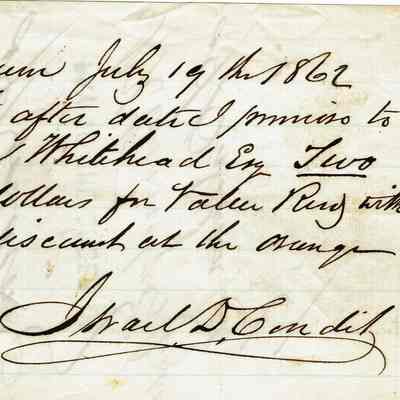 July 19th 1862
after date I promise to
Whitehead Esq Two
dollars for Value Recd with
discount at the orange
Israel D, Condit